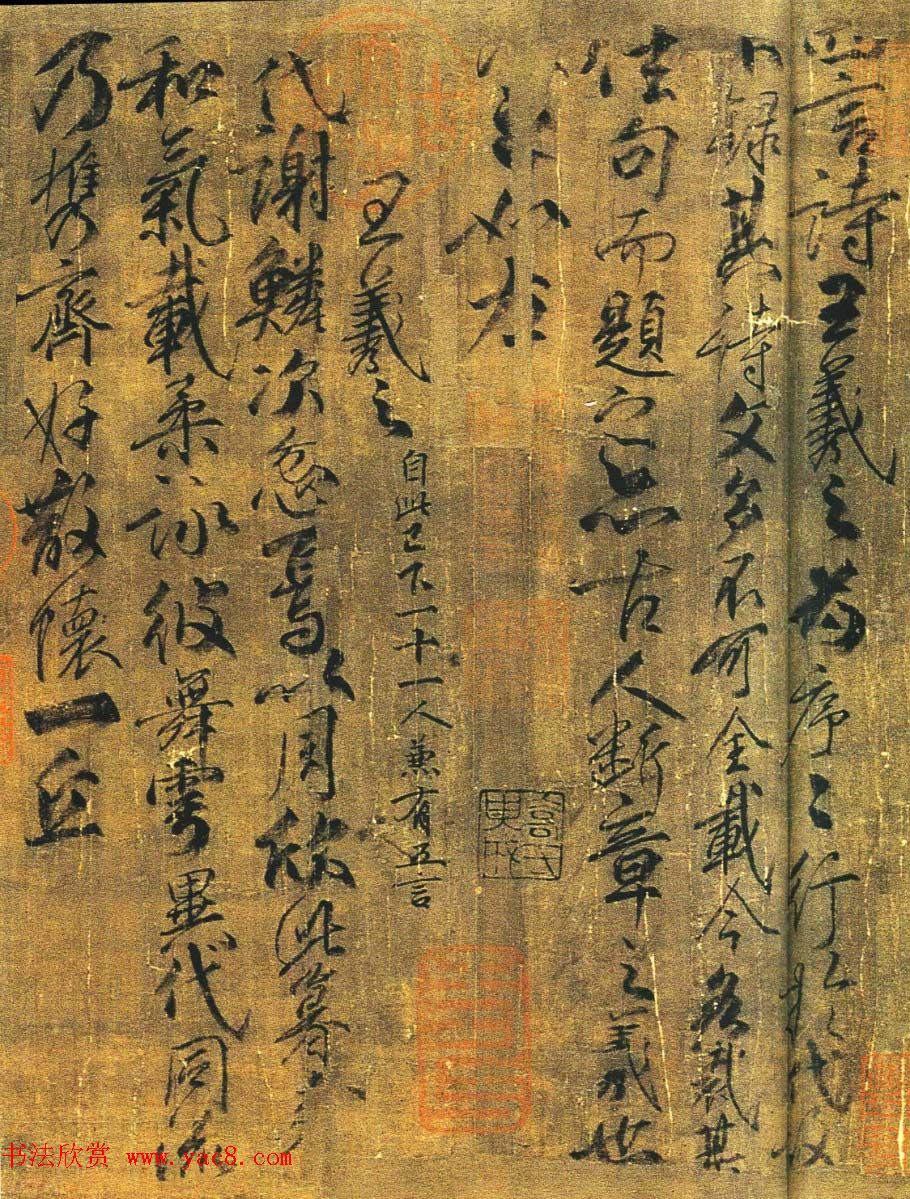 四言詩王羲之為序序行於代故
不錄其詩文多不可全載今各裁其
佳句而題之亦古人斷章之義也
如左
王羲之 自此已下一十一人兼有五言
代謝鱗次忽焉以周欣此暮春
和氣載柔詠彼舞雩異代同流
乃攜齊好散懷一丘
书法欣赏 www.yac8.com